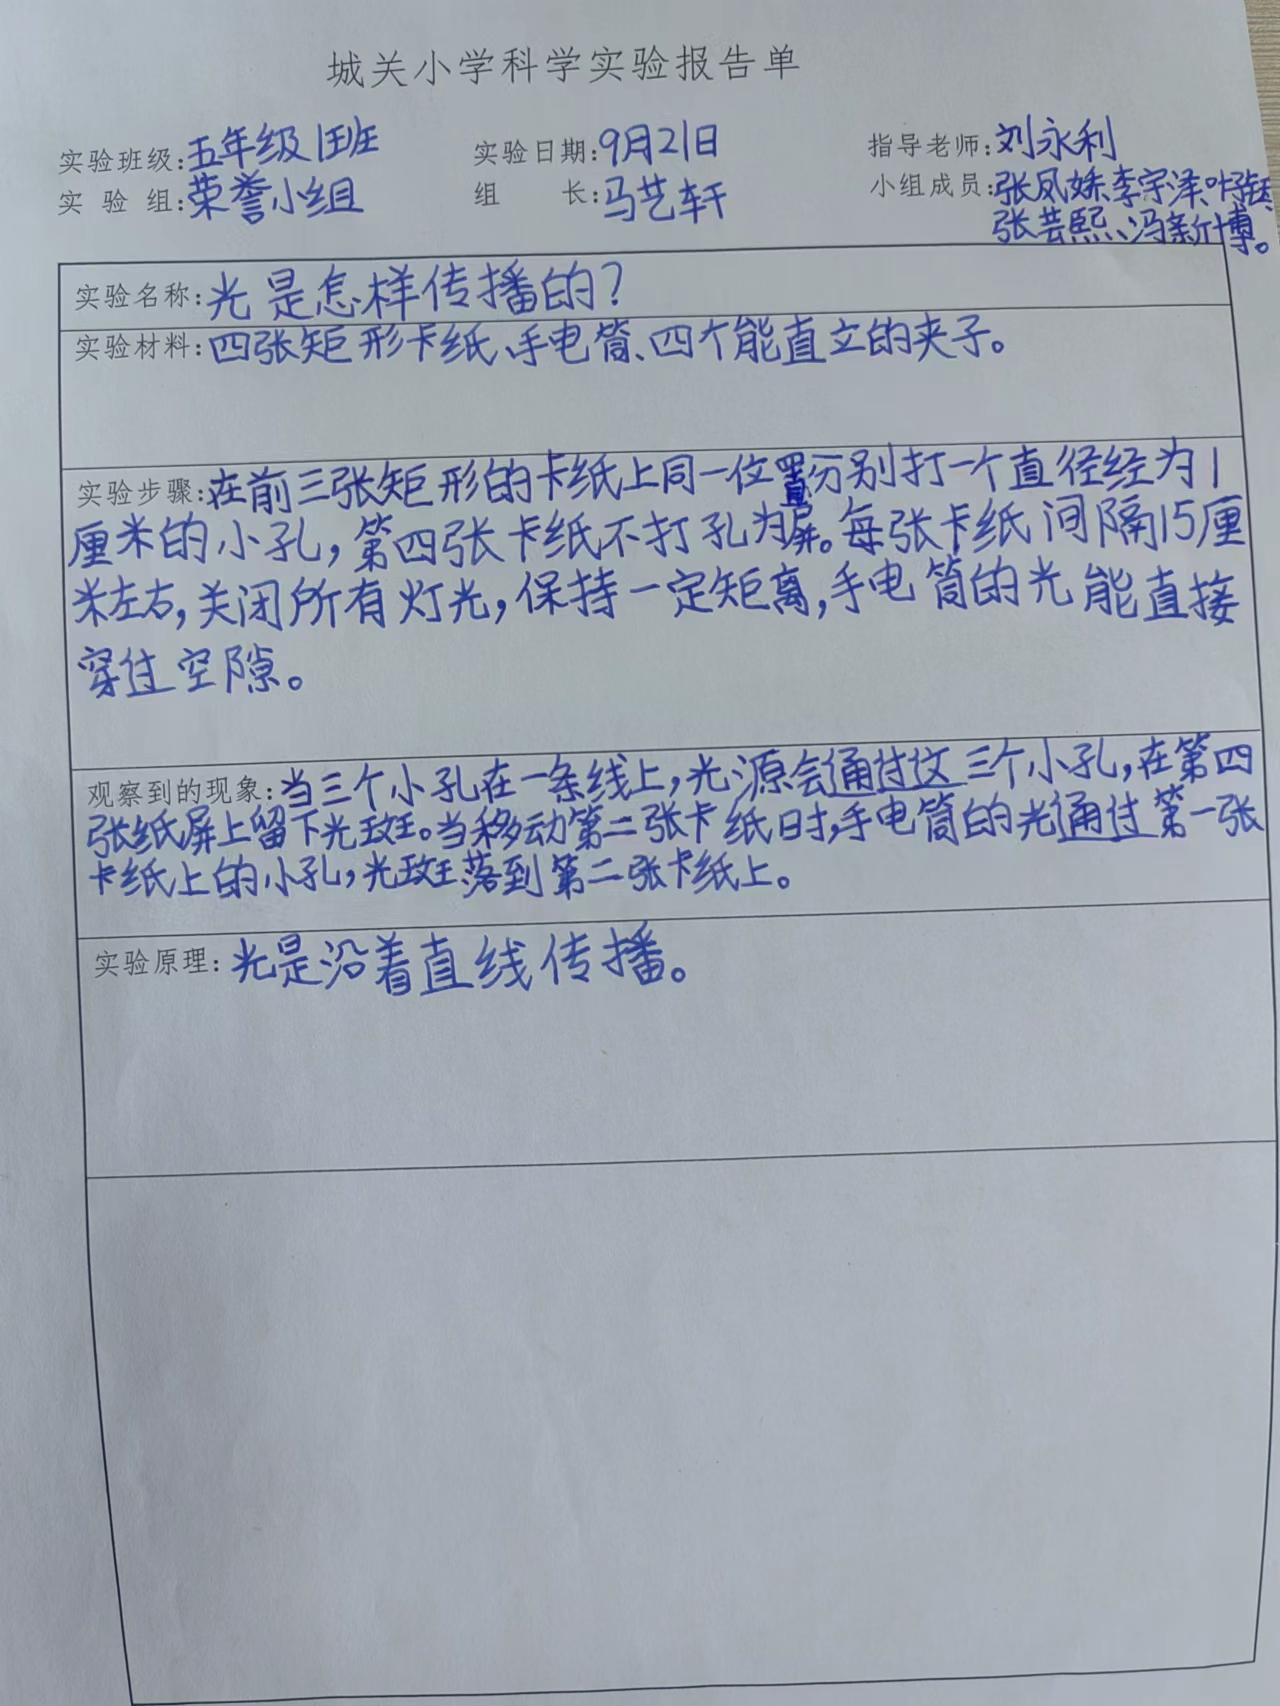 城关小学科学实验报告单
实验班级:五年级1班 实验日期:9月21日 指导老师:刘永利
实验组:荣誉小组 组长:马艺轩 小组成员:张凤娇、李宇泽、叶
张芸熙、冯新博。
实验名称:光是怎样传播的?
实验材料:四张矩形卡纸、手电筒、四个能直立的夹子。
实验步骤:在前三张矩形的卡纸上同一位置分别打一个直径经为1
厘米的小孔,第四张卡纸不打孔为屏。每张卡纸间隔15厘
米左右,关闭所有灯光,保持一定矩离,手电筒的光能直接
穿过空隙。
观察到的现象:当三个小孔在一条线上,光源会通过这三个小孔,在第四
张纸屏上留下光斑。当移动第二张卡纸时,手电筒的光通过第一张
卡纸上的小孔,光斑落到第二张卡纸上。
实验原理:光是沿着直线传播。